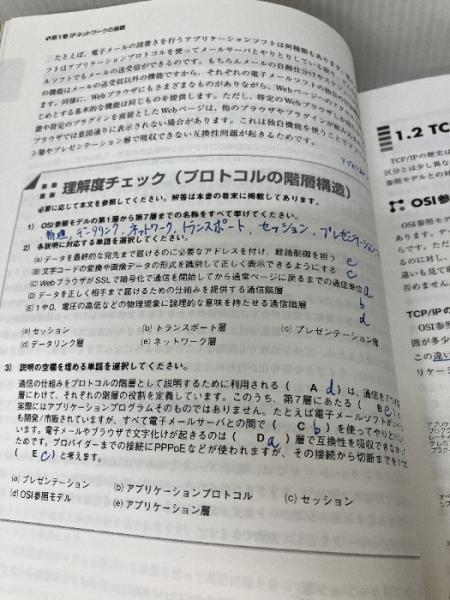 第1章 IPネットワークの基礎
たとえば、電子メールの読書きを行うアプリケーションソフトは何種類もあります。
ソフトはアプリケーションプロトコルを使ってメールサーバとやりとりしている限り
ルソフトでもメールの送受信ができるのです。もちろんメールの自動仕分けや
の機能はメールの送受信以外の機能ですから、それぞれの電子メールソフトの
ます。同様に、Webブラウザにもさまざまなものがありながら、Webページの
じめとする基本的な機能は同じものを提供します。ただし、特定のWebブラウザの
能や特定のプラグインを前提としたWebページは、他のブラウザやプラグインが
ブラウザでは意図通りに表示されない場合があります。これは独自機能を使うことで
ン層やプレゼンテーション層で吸収できない互換性問題が起きるためです。
理解度チェック（プロトコルの階層構造）
必要に応じて本文を参照してください。解答は本書の巻末に掲載してあります。
1) OSI参照モデルの第1層から第7層までの名称をすべて挙げてください。
物理, データリンク, ネットワーク, トランスポート, セッション, プレゼンテーション
2) 各説明に対応する単語を選択してください。
(A) データを最終的な宛先まで届けるのに必要なアドレスを付け、経路制御を担う e
(B) 文字コードの変換や画像データの形式を識別して正しく表示できるようにする c
(C) WebブラウザがSSLで暗号化で通信を開始してから通常ページに戻るまでの通信単位 a
(D) データを正しく相手まで届けるための仕組みを提供する通信階層 b
(E) 1や0、電圧の高低などの物理現象に論理的な意味を持たせる通信階層 d
(a) セッション (b) トランスポート層 (c) プレゼンテーション層
(d) データリンク層 (e) ネットワーク層
3) 説明の空欄を埋める単語を選択してください。
通信の仕組みをプロトコルの階層として説明するために利用される（ A d ）は、通信を7つの
層にわけて、それぞれの階層の役割を定義しています。このうち、第7層にあたる（ B e ）は
実際にはアプリケーションプログラムそのものではありません。たとえば電子メールソフトが
も開発/市販されていますが、すべて電子メールサーバとの間で（ C b ）を使ってやりとり
います。電子メールやブラウザで文字化けが起きるのは（ D a ）層で互換性を吸収できない
ためです。プロバイダーまでの接続にPPPoEなどが使われますが、その接続から切断までを1つの
（ E c ）と考えます。
(a) プレゼンテーション (b) アプリケーションプロトコル (c) セッション
(d) OSI参照モデル (e) アプリケーション層
1.2 TC
TCP/IPの歴史は
区分とは少し異な
参照モデルとの対
OSI参
OSI参照モデ
あります。デ
らです。ただ
るのに対し、
違いも見て
否めません。
TCP/IPの
OSI参照
囲が多少
この違い
リケーシ